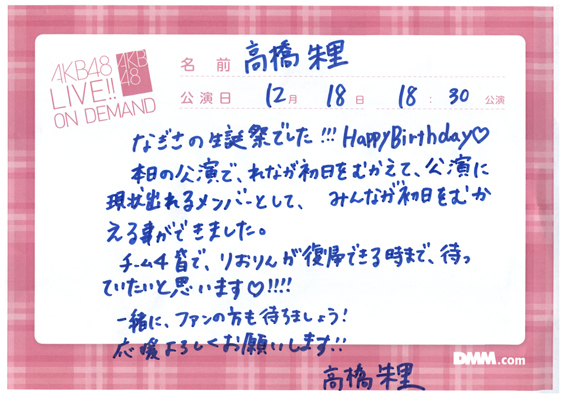 AKB48
LIVE!!
ON DEMAND
AKB
48
名前 高橋朱里
公演日 12月 18日 18:30 公演
なぎさの生誕祭でした!!! HappyBirthday♡
本日の公演で、れなが初日をむかえて、公演に
現状出れるメンバーとして、 みんなが初日をむか
える事ができました。
チーム4皆で、りおりんが復帰できる時まで、待っ
ていたいと思います♡!!!!
一緒に、ファンの方も待ちましょう!
応援よろしくお願いします!!
高橋朱里
DMM.com